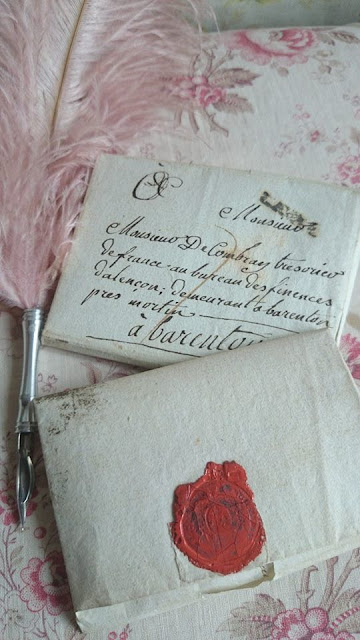 À
Monsieur
Monsieur De Combray tresorier
de france au bureau des finences
d'alençon, demeurant à barenton
pres mortin
à barenton